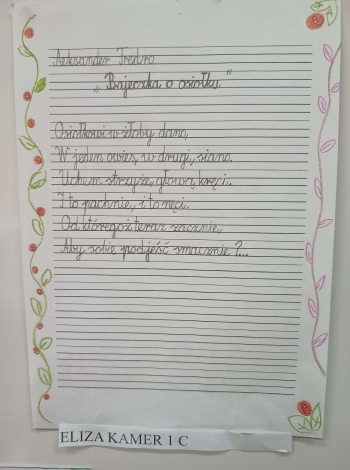 Aleksander Fredro
„Bajeczka o osiołku”
Osiołkowi w żłoby dano,
W jeden owies, w drugi siano.
Uchem strzyże, głową kręci.
I to pachnie, i to nęci.
Od któregoż teraz zacznie,
Aby sobie podjeść smacznie?...
ELIZA KAMER 1 C